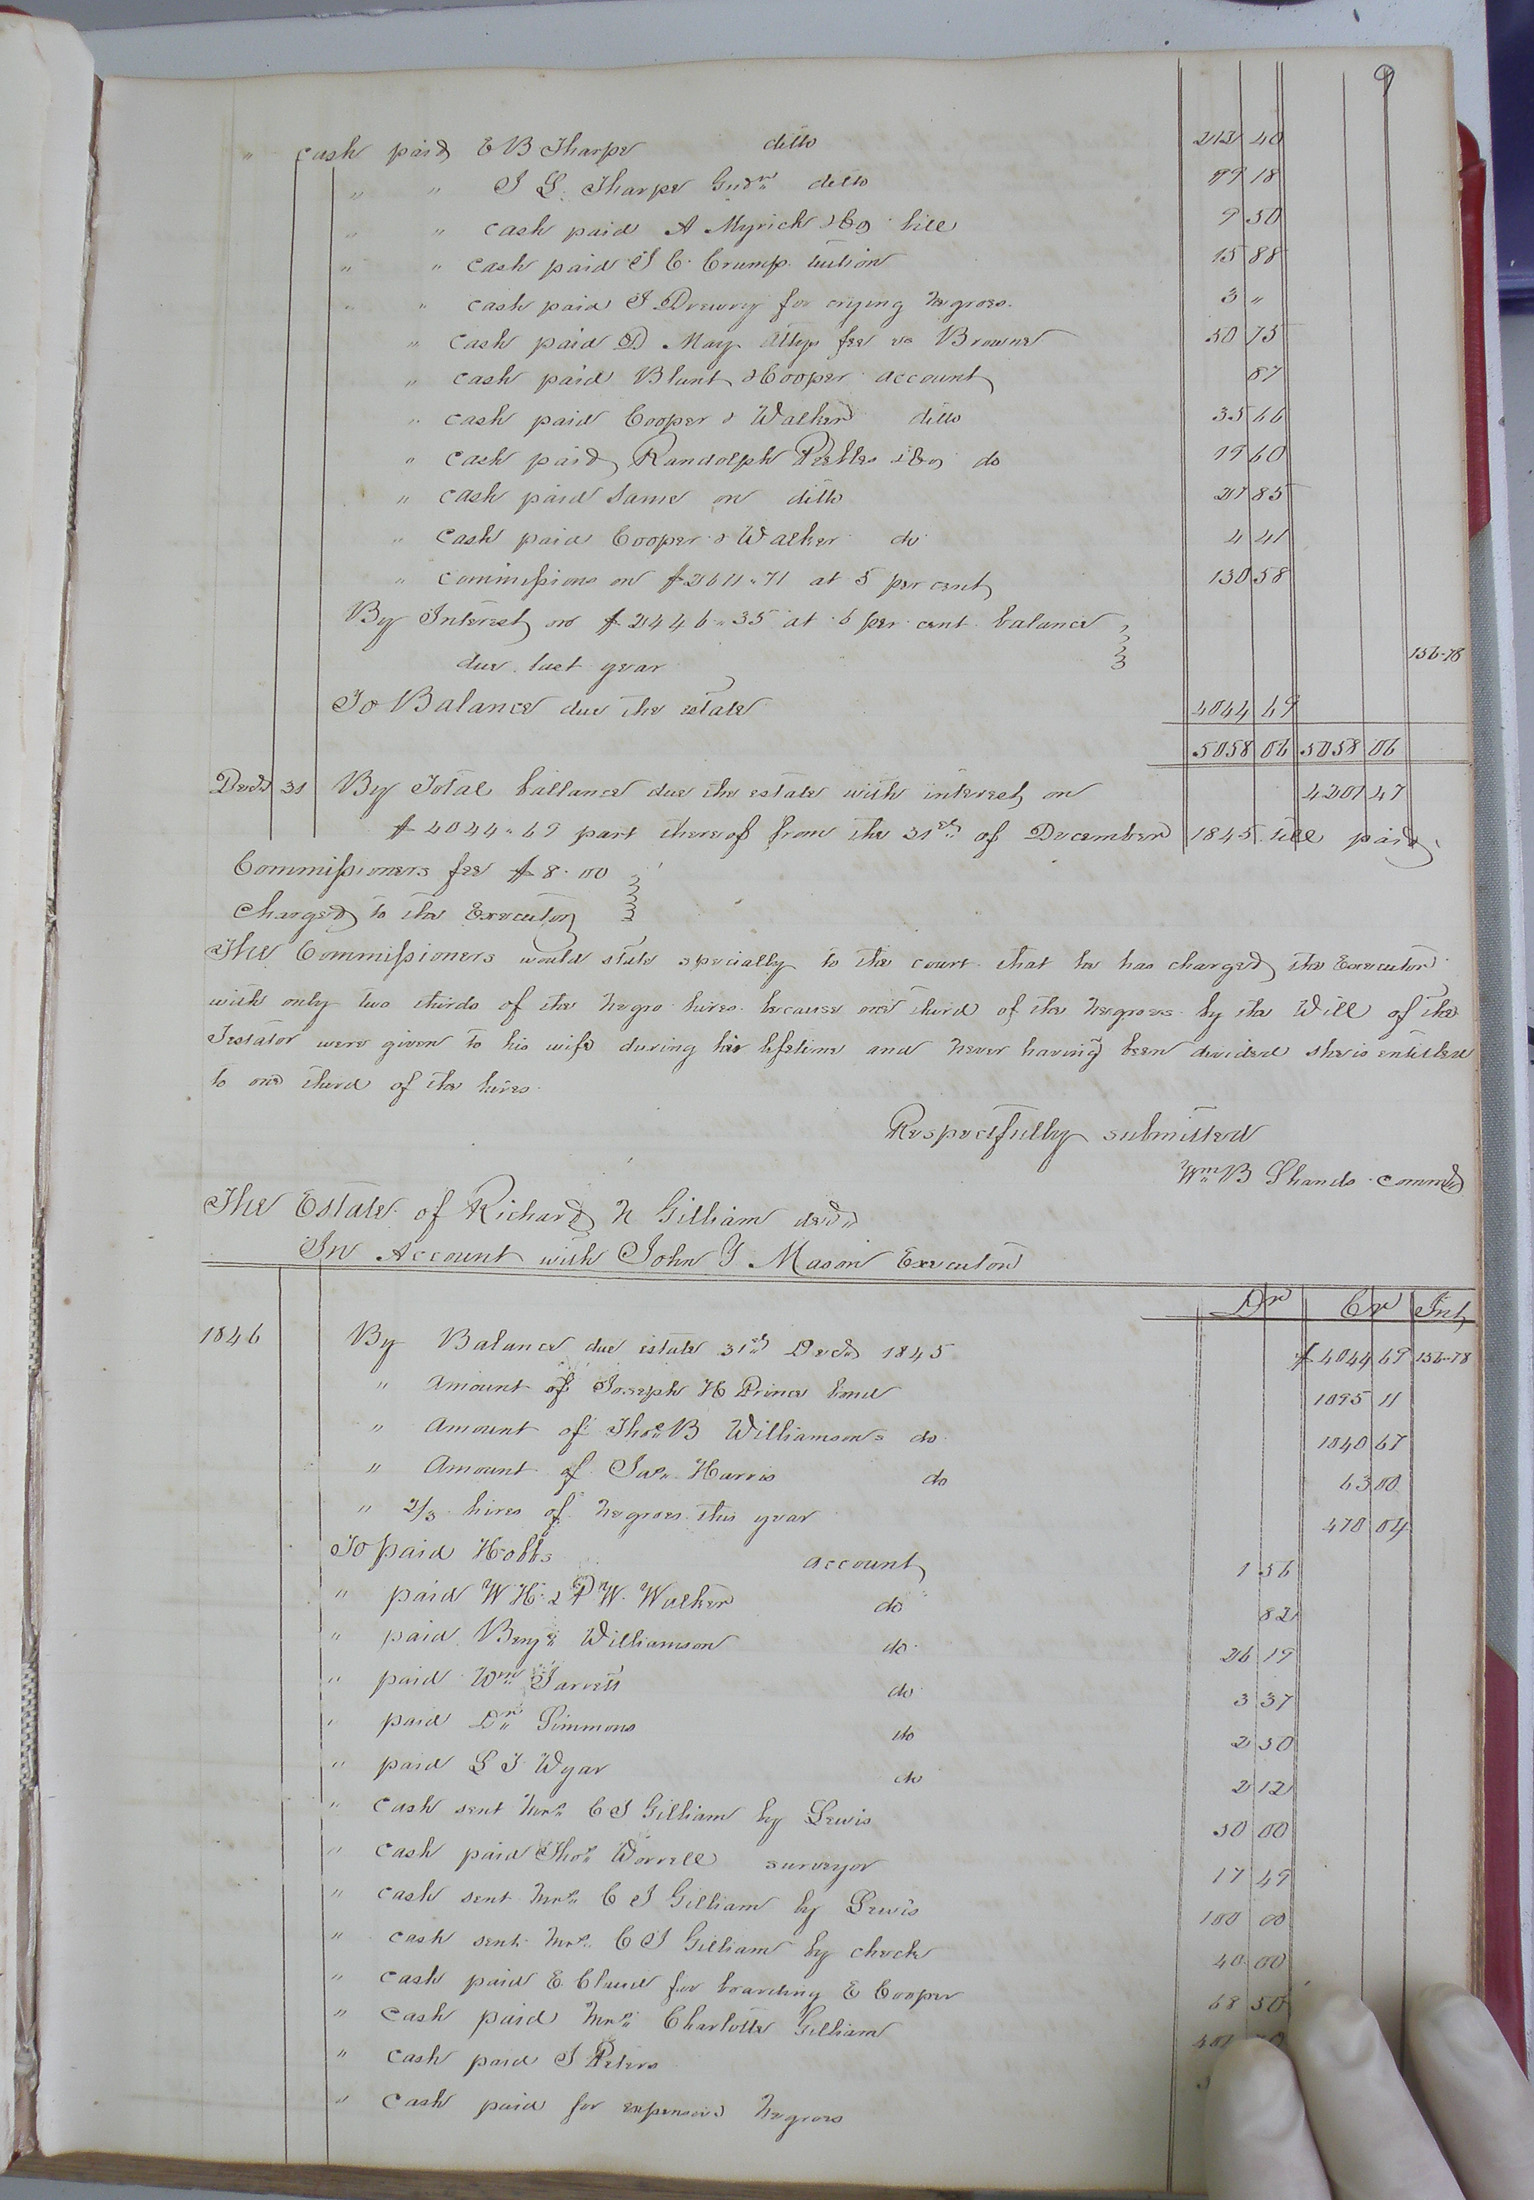 9
" cash paid E B Tharpe ditto 212 40
" " J L. Tharpe Gudn ditto 99 18
" " cash paid A Myrick & Co bill 9 50
" " cash paid J C. Crump tuition 15 88
" " cash paid J Drewry for crying negroes 3 "
" cash paid D May Atty fee vs Browne 50 75
" cash paid Blunt & Cooper account 87
" cash paid Cooper & Walker ditto 35 66
" cash paid Randolph Peebles & Co do 19 60
" cash paid same on ditto 21 85
" cash paid Cooper & Walker do 4 41
" commissions on $2611.71 at 5 per cent 130 58
By Interest on $2446.35 at 6 per cent balance
due last year 156.78
To Balance due the estate 4044 69
5058 06 5058 06
Decr 31 By Total ballance due the estate with interest on 4201 47
$4044.69 part thereof from the 31st of December 1845 till paid
Commissioners fee $8.00
Charged to the Executor
The Commissioners would state specially to the court that he has charged the Executor
with only two thirds of the negro hires because one third of the negroes by the Will of the
Testator were given to his wife during her lifetime and never having been divided she is entitled
to one third of the hires.
Respectfully submitted
Wm B Shands commr
The Estate of Richard H Gilliam decd
In Account with John Y Mason Executor
Dr Cr Int
1846 By Balance due estate 31st Decr 1845 $4044 69 156.78
" Amount of Joseph H Prince bond 1095 11
" Amount of Thos B Williamsons do 1040 67
" Amount of Jas Harris do 63 00
" 2/3 hires of negroes this year 470 04
To paid Hobbs account 1 56
" paid W H. & P W. Walker do 82
" paid Benja Williamson do 26 19
" paid Wm Jarrett do 3 37
" paid Dr Simmons do 2 50
" paid L J Wyar do 2 12
" cash sent Mrs C S Gilliam by Lewis 50 00
" cash paid Thos Worrell surveyor 17 49
" cash sent Mrs C S Gilliam by Lewis 100 00
" cash sent Mrs C S Gilliam by check 40 00
" cash paid E Claud for boarding E Cooper 68 50
" cash paid Mrs Charlotte Gilliam
" cash paid J Peters
" cash paid for expenses negroes